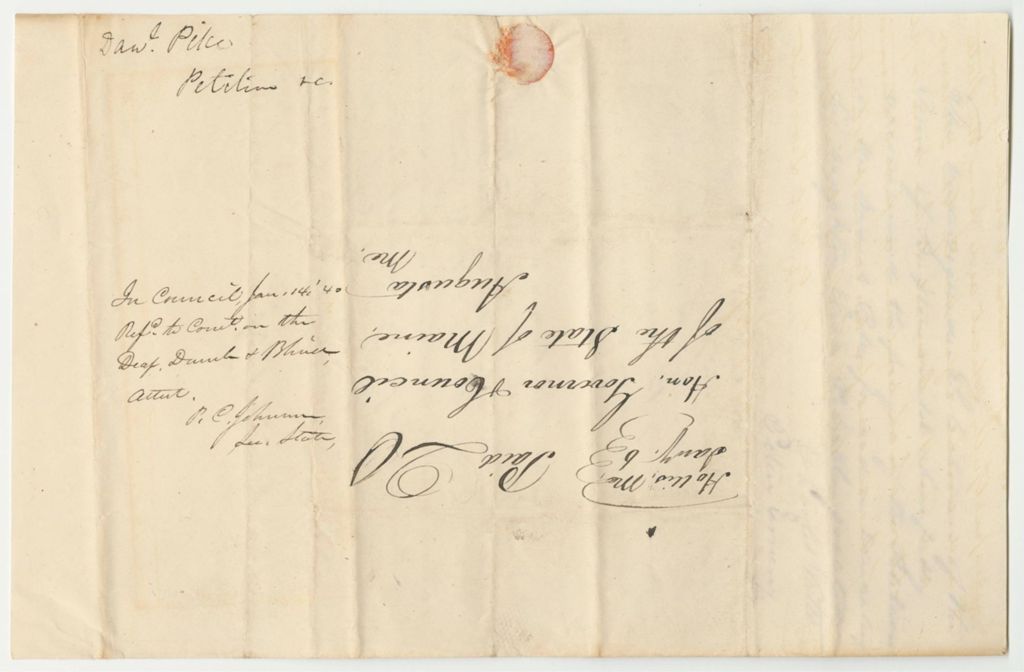 Danl. Pike
Petition &c.
In Council, Jan. 14, 40
Refd. to Comt. on the
Deaf, Dumb & Blind,
attest.
P. C. Johnson,
Sec. State,
Hollis, Me.
Jany. 6
Paid 20
Hon. Governor & Council
of the State of Maine,
Augusta
Me.